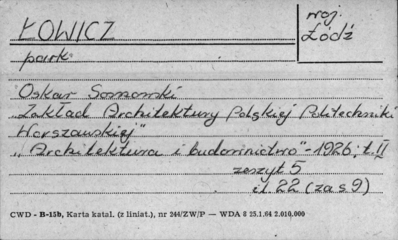 ŁOWICZ
woj.
Łódź
park
Oskar Sosnowski
„Zakład Architektury Polskiej Politechniki
Warszawskiej"
„Architektura i budownictwo" - 1926; t. II
zeszyt 5
il. 22 (za s 9)
CWD - B-15b, Karta katal. (z liniat.), nr 244/ZW/P — WDA 8 25.1.64 2.010.000